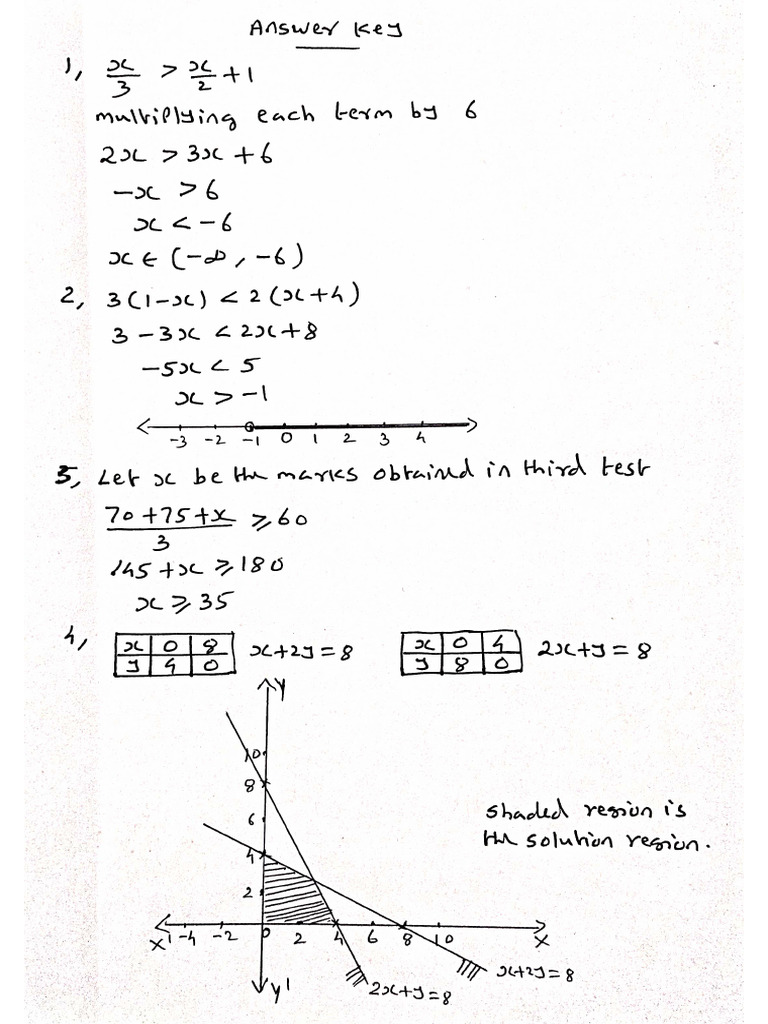 Answer Key
1, x/3 > x/2 + 1
multiplying each term by 6
2x > 3x + 6
-x > 6
x < -6
x ∈ (-∞, -6)
2, 3(1-x) < 2(x+4)
3 - 3x < 2x + 8
-5x < 5
x > -1
-3 -2 -1 0 1 2 3 4
3, Let x be the marks obtained in third test
(70 + 75 + x)/3 ≥ 60
145 + x ≥ 180
x ≥ 35
4,
x 0 8
y 4 0
x+2y = 8
x 0 4
y 8 0
2x+y = 8
Y
10
8
6
4
2
shaded region is
the solution region.
X' -4 -2 0 2 4 6 8 10 X
Y'
2x+y=8
x+2y=8